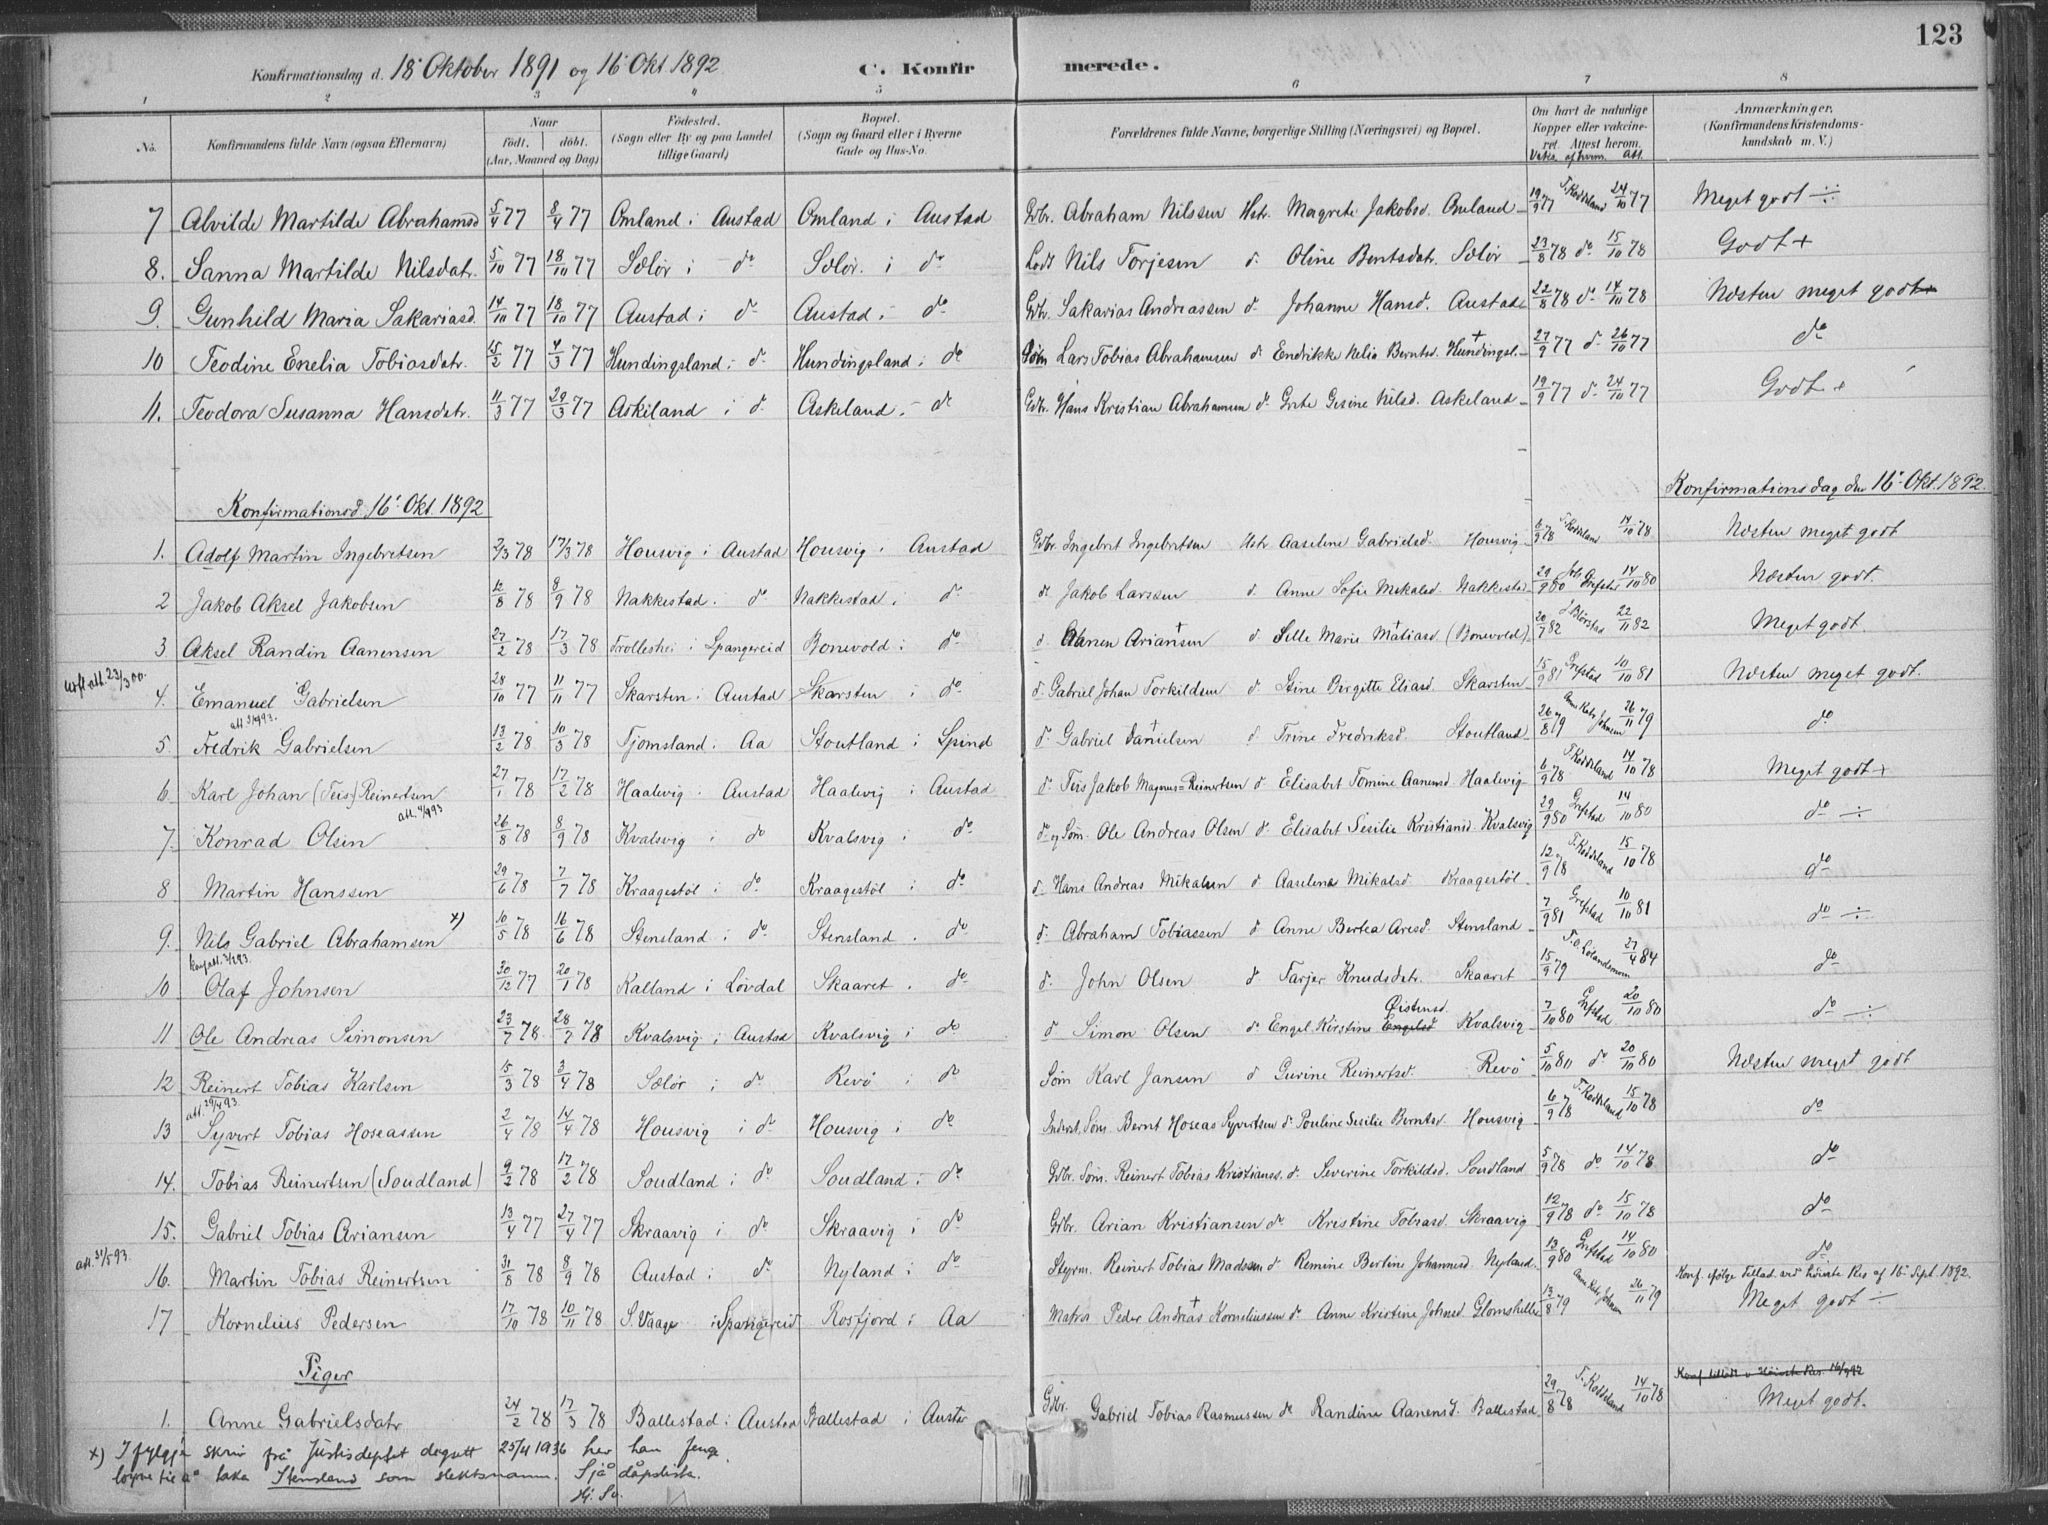 123
Konfirmationsdag d. 18 Oktober 1891 og 16 Okt 1892 C. Konfirmerede.
1 2 3 4 5 6 7 8
No. Konfirmandens fulde Navn (ogsaa Efternavn) Naar födt. döbt. (Aar, Maaned og Dag) Födested. (Sogn eller By og paa Landet tillige Gaard) Bopæl. (Sogn og Gaard eller i Byerne Gade og Hus-No. Forældrenes fulde Navne, borgerlige Stilling (Næringsvei) og Bopæl. Om havt de naturlige Kopper eller vakcineret. Attest herom. Vaks. af hvem. att. Anmærkninger. (Konfirmandens Kristendomskundskab m. V.)
7 Alvilde Martilde Abrahamsd 5/4 77 8/4 77 Omland i Austad Omland i Austad Gdbr. Abraham Nilssen Hstr. Magrete Jakobsd. Omland 19/9 77 T. Køddeland 24/10 77 Meget godt ÷
8. Sanna Martilde Nilsdatr. 5/10 77 18/10 77 Sælør i do Sælør i do Lods Nils Torjesen d. Oline Berntsdatr. Sælør 23/8 78 do 15/10 78 Godt +
9. Gunhild Maria Sakariasd. 14/10 77 18/10 77 Austad i do Austad i do Gdbr. Sakarias Andreassen do Johanne Hansd. Austad 22/8 78 do 14/10 78 Næsten meget godt
10 Teodine Enelia Tobiasdatr. 15/2 77 4/3 77 Hundingsland i do Hundingsland i do Søm Lars Tobias Abrahamsen do Endrikke Nelia Berntsd. Hundingsl. 27/9 77 do 26/10 77 do
11. Teodora Susanna Hansdatr. 11/3 77 29/3 77 Askiland i do Askeland i do Gdbr. Hans Kristian Abrahamsen do Grete Gesine Nilsd. Askeland 19/9 77 do 24/10 77 Godt +
Konfirmationsd. 16 Okt. 1892 Konfirmationsdag den 16 Okt. 1892
1. Adolf Martin Ingebretsen 2/3 78 17/3 78 Housvig i Austad Housvig i Austad Gdbr. Ingebret Ingebretsen Hstr Aaseline Gabrielsd. Housvig 6/9 78 T. Køddeland 14/10 78 Næsten meget godt
2 Jakob Aksel Jakobsen 12/8 78 8/9 78 Nakkestad i do Nakkestad i do d. Jakob Larssen d. Anne Sofie Mikalsd. Nakkestad 29/9 80 Grefstad 14/10 80 Næsten godt.
3 Aksel Randin Aanensen 27/2 78 17/3 78 Trollestei i Spangereid Bonevold i do d. Aanen Ariansen + d. Sille Marie Matiasd + (Bonevold) 20/7 82 22/11 82 Meget godt.
att. 23/3 00.
4. Emanuel Gabrielsen 28/10 77 11/11 77 Skarsten i Austad Skarsten i do d. Gabriel Johan Torkildsen d. Stine Birgitte Eliasd. Skarsten 15/9 81 Grefstad 10/10 81 Næsten meget godt.
5. Fredrik Gabrielsen 13/2 78 10/3 78 Tjomsland i Aa Stoutland i Spind d. Gabriel Danielsen + d Trine Fredriksd. Stoutland 26/8 79 26/11 79 do
6. Karl Johan (Teis) Reinertsen 27/1 78 17/2 78 Haalevig i Austad Haalvig i Austad d. Teis Jakob Magnus Reinertsen d. Elisabet Tomine Aanensd. Haalevig 6/9 78 T. Køddeland 14/10 78 Meget godt +
7. Konrad Olsen 26/8 78 8/9 78 Kvalsvig i do Kvalsvig i do do og Søm. Ole Andreas Olsen do Elisabet Sesilie Kristiansd. Kvalsvig 29/9 80 Grefstad 14/10 80 do ÷
8 Martin Hanssen 29/6 78 7/7 78 Kraagestøl i do Kraagestøl i do d. Hans Andreas Mikalsen d. Aaselena Mikalsd. Kraagestøl 12/9 78 T. Køddeland 15/10 78 do
9. Nils Gabriel Abrahamsen x) 10/5 78 16/6 78 Stensland i do Stensland do d. Abraham Tobiassen d. Anne Bertea Aresd. Stensland 7/9 81 Grefstad 10/10 81 do ÷
10 Olaf Johnsen 30/12 77 20/1 78 Kalland i Løvdal Skaaret do d. John Olsen d. Tarjer Knudsdatr. Skaaret 15/9 79 27/4 84 do
11 Ole Andreas Simonsen 23/7 78 28/7 78 Kvalsvig i Austad Kvalsvig i do d. Simon Olsen do Engel Kirstine Engelsd Øistensd. Kvalsvig 7/10 80 Grefstad 20/10 80 do ÷
12 Reinert Tobias Karlsen 15/3 78 3/4 78 Sælør i do Revø i do Søm Karl Jansen d Gurine Reinertsd. Revø 5/10 80 do 20/10 80 Næsten meget godt
13 Syvert Tobias Hoseassen 2/4 78 14/4 78 Housvig i do Housvig i do Inderst, Søm. Bernt Hoseas Syvertsen do Pouline Sesilie Berntsd. Housvig 6/9 78 T. Køddeland 15/10 78 do
14. Tobias Reinertsen (Soudland) 9/2 78 17/2 78 Soudland i do Soudland i do Gdbr. Søm. Reinert Tobias Kristianss. d. Severine Torkildsd. Soudland 5/9 78 do 14/10 78 do
15. Gabriel Tobias Ariansen 13/4 77 27/4 77 Skraavig i do Skraavig i do Gdbr. Arian Kristiansen do Kristine Tobiasd. Skraavig 12/9 78 do 15/10 78 do
att. 31/5 93.
16. Martin Tobias Reinertsen 31/8 78 8/9 78 Austad i do Nyland i do Styrm. Reinert Tobias Madssen do Remine Bertine Johannesd. Nyland 13/9 80 Grefstad 14/10 80 do
Konf. ifølge Tillad. ved høieste Res af 16 Sept. 1892.
17 Kornelius Pedersen 17/10 78 10/11 78 S. Vaage i Spangereid Rosfjord i Aa Matros Peder Andreas + Korneliussen do Anne Kristine Johnsd. Glomshelle 13/8 79 26/11 79 Meget godt ÷
Piger
1. Anne Gabrielsdatr 24/2 78 17/3 78 Ballestad i Austad Ballestad i Austad Gdbr. Gabriel Tobias Rasmussen do Randine Aanensd. Ballestad 29/8 78 T. Køddeland 14/10 78 Meget godt.
x) I fylgje skriv frå Justisdeptet dagsett 25/4 1936 hev han fenge
løyve til å taka Stensland som slektsnamn. Sjå dåpslista.
Hj. Sv.